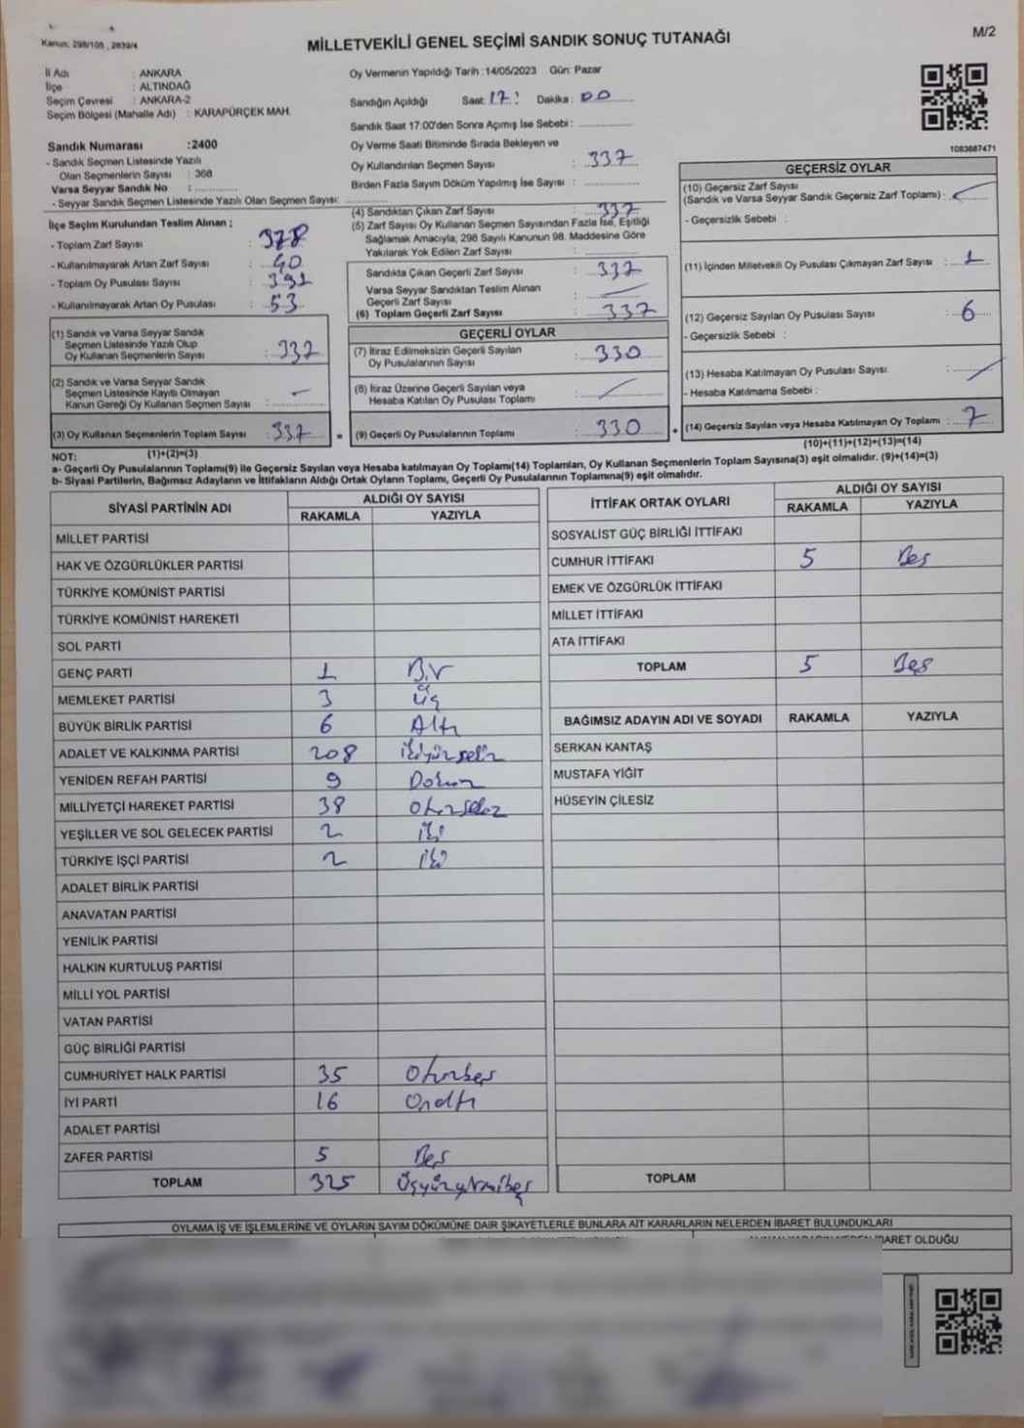 Kanun: 298/105 , 2839/4
MİLLETVEKİLİ GENEL SEÇİMİ SANDIK SONUÇ TUTANAĞI
M/2
İl Adı : ANKARA
İlçe : ALTINDAĞ
Seçim Çevresi : ANKARA-2
Seçim Bölgesi (Mahalle Adı) : KARAPÜRÇEK MAH.
Sandık Numarası :2400
- Sandık Seçmen Listesinde Yazılı
Olan Seçmenlerin Sayısı : 368
Varsa Seyyar Sandık No :
- Seyyar Sandık Seçmen Listesinde Yazılı Olan Seçmen Sayısı:
Oy Vermenin Yapıldığı Tarih :14/05/2023 Gün: Pazar
Sandığın Açıldığı Saat: 17: Dakika : 00
Sandık Saat 17:00'den Sonra Açımış İse Sebebi :
Oy Verme Saati Bitiminde Sırada Bekleyen ve
Oy Kullandırılan Seçmen Sayısı : 337
Birden Fazla Sayım Döküm Yapılmış İse Sayısı :
1083687471
İlçe Seçim Kurulundan Teslim Alınan ;
- Toplam Zarf Sayısı : 378
- Kullanılmayarak Artan Zarf Sayısı : 40
- Toplam Oy Pusulası Sayısı : 391
- Kullanılmayarak Artan Oy Pusulası : 53
(1) Sandık ve Varsa Seyyar Sandık
Seçmen Listesinde Yazılı Olup
Oy Kullanan Seçmenlerin Sayısı : 337
(2) Sandık ve Varsa Seyyar Sandık
Seçmen Listesinde Kayıtlı Olmayan
Kanun Gereği Oy Kullanan Seçmen Sayısı : -
(3) Oy Kullanan Seçmenlerin Toplam Sayısı : 337
(1)+(2)=(3)
(4) Sandıktan Çıkan Zarf Sayısı : 337
(5) Zarf Sayısı Oy Kullanan Seçmen Sayısından Fazla İse, Eşitliği
Sağlamak Amacıyla, 298 Sayılı Kanunun 98. Maddesine Göre
Yakılarak Yok Edilen Zarf Sayısı :
Sandıkta Çıkan Geçerli Zarf Sayısı : 337
Varsa Seyyar Sandıktan Teslim Alınan
Geçerli Zarf Sayısı :
(6) Toplam Geçerli Zarf Sayısı : 337
GEÇERLİ OYLAR
(7) İtiraz Edilmeksizin Geçerli Sayılan
Oy Pusulalarının Sayısı : 330
(8) İtiraz Üzerine Geçerli Sayılan veya
Hesaba Katılan Oy Pusulası Toplamı :
= (9) Geçerli Oy Pusulalarının Toplamı : 330
GEÇERSİZ OYLAR
(10) Geçersiz Zarf Sayısı
(Sandık ve Varsa Seyyar Sandık Geçersiz Zarf Toplamı) :
- Geçersizlik Sebebi :
(11) İçinden Milletvekili Oy Pusulası Çıkmayan Zarf Sayısı : 1
(12) Geçersiz Sayılan Oy Pusulası Sayısı : 6
- Geçersizlik Sebebi :
(13) Hesaba Katılmayan Oy Pusulası Sayısı :
- Hesaba Katılmama Sebebi :
+ (14) Geçersiz Sayılan veya Hesaba Katılmayan Oy Toplamı : 7
(10)+(11)+(12)+(13)=(14)
NOT:
a- Geçerli Oy Pusulalarının Toplamı(9) ile Geçersiz Sayılan veya Hesaba katılmayan Oy Toplamı(14) Toplamları, Oy Kullanan Seçmenlerin Toplam Sayısına(3) eşit olmalıdır. (9)+(14)=(3)
b- Siyasi Partilerin, Bağımsız Adayların ve İttifakların Aldığı Ortak Oyların Toplamı, Geçerli Oy Pusulalarının Toplamına(9) eşit olmalıdır.
SİYASİ PARTİNİN ADI ALDIĞI OY SAYISI
RAKAMLA YAZIYLA
MİLLET PARTİSİ
HAK VE ÖZGÜRLÜKLER PARTİSİ
TÜRKİYE KOMÜNİST PARTİSİ
TÜRKİYE KOMÜNİST HAREKETİ
SOL PARTİ
GENÇ PARTİ 1 Bir
MEMLEKET PARTİSİ 3 Üç
BÜYÜK BİRLİK PARTİSİ 6 Altı
ADALET VE KALKINMA PARTİSİ 208 ikiyüzsekiz
YENİDEN REFAH PARTİSİ 9 Dokuz
MİLLİYETÇİ HAREKET PARTİSİ 38 Otuzsekiz
YEŞİLLER VE SOL GELECEK PARTİSİ 2 iki
TÜRKİYE İŞÇİ PARTİSİ 2 iki
ADALET BİRLİK PARTİSİ
ANAVATAN PARTİSİ
YENİLİK PARTİSİ
HALKIN KURTULUŞ PARTİSİ
MİLLİ YOL PARTİSİ
VATAN PARTİSİ
GÜÇ BİRLİĞİ PARTİSİ
CUMHURİYET HALK PARTİSİ 35 Otuzbeş
İYİ PARTİ 16 Onaltı
ADALET PARTİSİ
ZAFER PARTİSİ 5 Beş
TOPLAM 325 Üçyüzyirmibeş
İTTİFAK ORTAK OYLARI ALDIĞI OY SAYISI
RAKAMLA YAZIYLA
SOSYALİST GÜÇ BİRLİĞİ İTTİFAKI
CUMHUR İTTİFAKI 5 Beş
EMEK VE ÖZGÜRLÜK İTTİFAKI
MİLLET İTTİFAKI
ATA İTTİFAKI
TOPLAM 5 Beş
BAĞIMSIZ ADAYIN ADI VE SOYADI RAKAMLA YAZIYLA
SERKAN KANTAŞ
MUSTAFA YİĞİT
HÜSEYİN ÇİLESİZ
TOPLAM
OYLAMA İŞ VE İŞLEMLERİNE VE OYLARIN SAYIM DÖKÜMÜNE DAİR ŞİKAYETLERLE BUNLARA AİT KARARLARIN NELERDEN İBARET BULUNDUKLARI
OLDUĞU